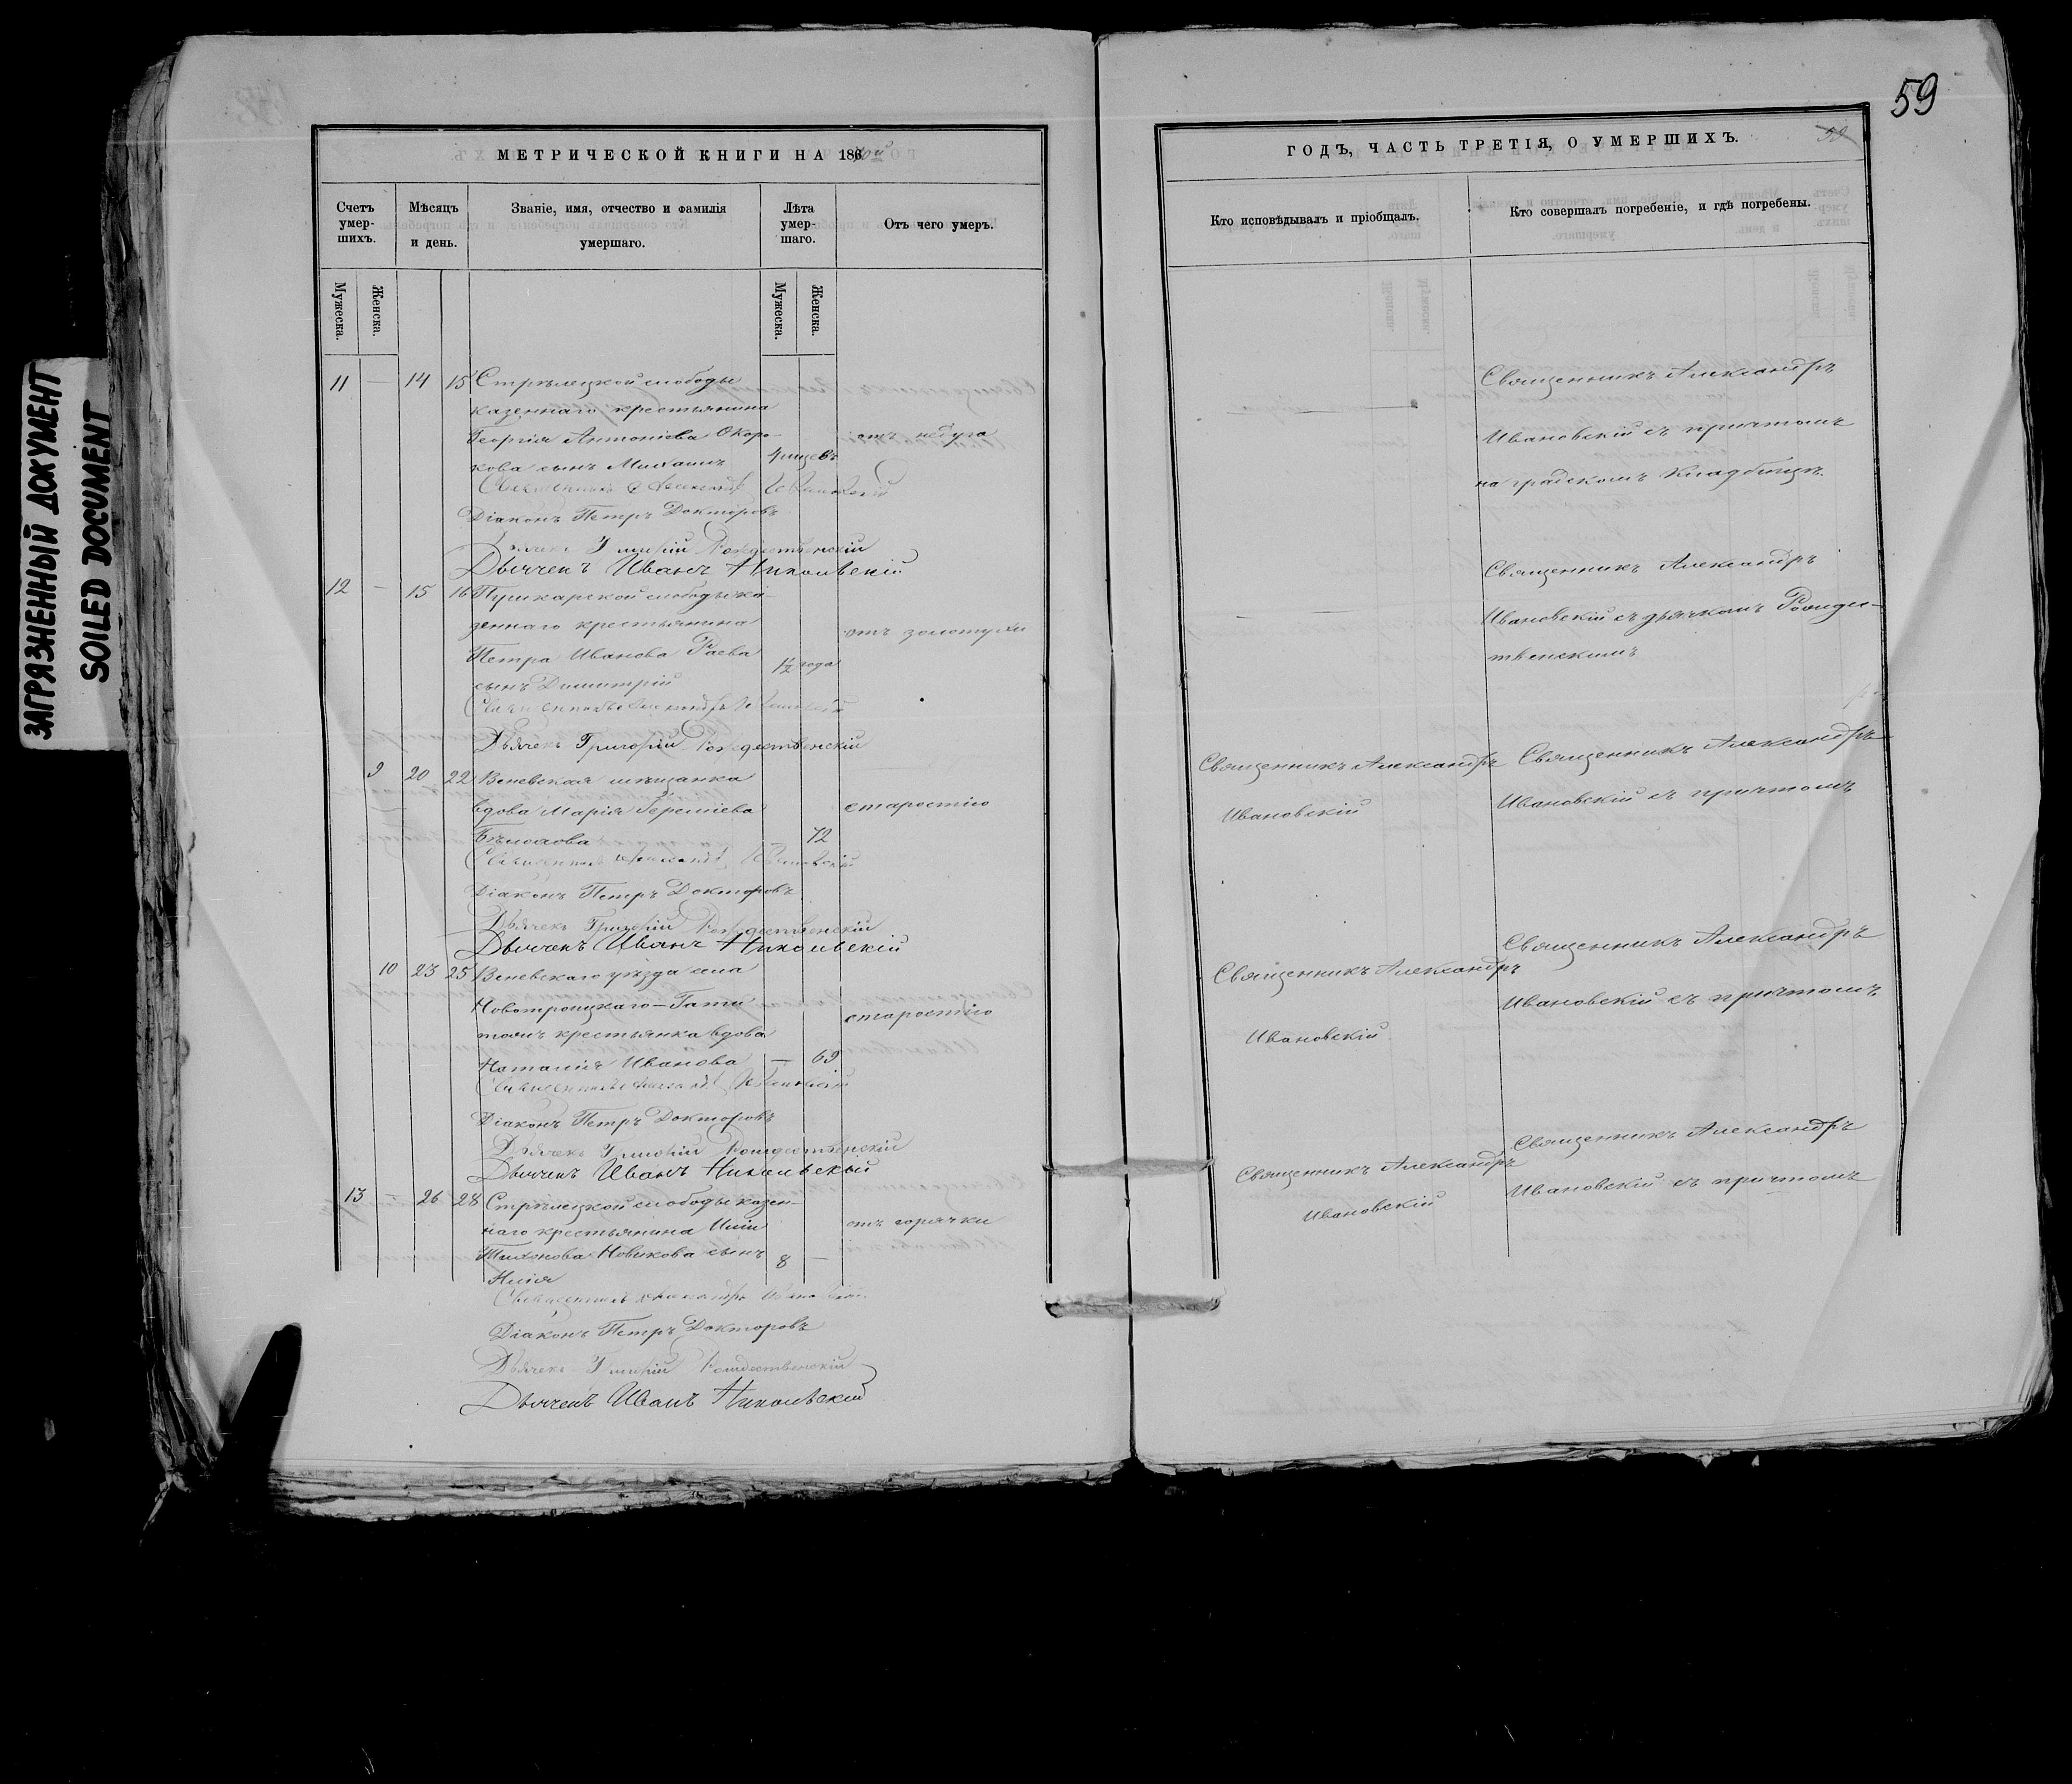 ЗАГРЯЗНЕННЫЙ ДОКУМЕНТ
SOILED DOCUMENT
МЕТРИЧЕСКОЙ КНИГИ НА 186
Счетъ умер-шихъ.
Мѣсяцъ и день.
Званіе, имя, отчество и фамилія умершаго.
Лѣта умер-шаго.
Отъ чего умеръ.
Мужеска.
Женска.
Мужеска.
Женска.
11 — 14 15 Стрѣлецкой слободы
казеннаго крестьянина
Георгія Антоніева Окоро-
кова сынъ Михаилъ
отъ недуга
Священникъ Александръ Ивановскій
Діаконъ Петръ Докторовъ
Дьячекъ Григорій Рождественскій
Дьячекъ Иванъ Никольскій
12 — 15 16 Пушкарской слободы ка-
зеннаго крестьянина
Петра Иванова Раева 1½ года
отъ золотухи
сынъ Димитрій
Священникъ Александръ Ивановскій
Дьячекъ Григорій Рождественскій
9 20 22 Веневская мѣщанка
вдова Марія Ѳереміева
старостію
— 72
Священникъ Александръ Ивановскій
Діаконъ Петръ Докторовъ
Дьячекъ Григорій Рождественскій
Дьячекъ Иванъ Никольскій
10 23 25 Веневскаго уѣзда села
Новотроицкаго-Гати
тожъ крестьянка вдова
старостію
Наталія Иванова — 69
Священникъ Александръ Ивановскій
Діаконъ Петръ Докторовъ
Дьячекъ Григорій Рождественскій
Дьячекъ Иванъ Никольскій
13 — 26 28 Стрѣлецкой слободы казен-
наго крестьянина Иліи
отъ горячки
Тихонова Новикова сынъ 8 —
Илія
Священникъ Александръ Ивановскій
Діаконъ Петръ Докторовъ
Дьячекъ Григорій Рождественскій
Дьячекъ Иванъ Никольскій
59
59
ГОДЪ, ЧАСТЬ ТРЕТІЯ, О УМЕРШИХЪ.
Кто исповѣдывалъ и пріобщалъ.
Кто совершалъ погребеніе, и гдѣ погребены.
Священникъ Александръ
Ивановскій съ причтомъ
на градскомъ кладбищѣ.
Священникъ Александръ
Ивановскій съ дьячкомъ Рожде-
ственскимъ
Священникъ Александръ
Ивановскій
Священникъ Александръ
Ивановскій съ причтомъ
Священникъ Александръ
Ивановскій
Священникъ Александръ
Ивановскій съ причтомъ
Священникъ Александръ
Ивановскій
Священникъ Александръ
Ивановскій съ причтомъ